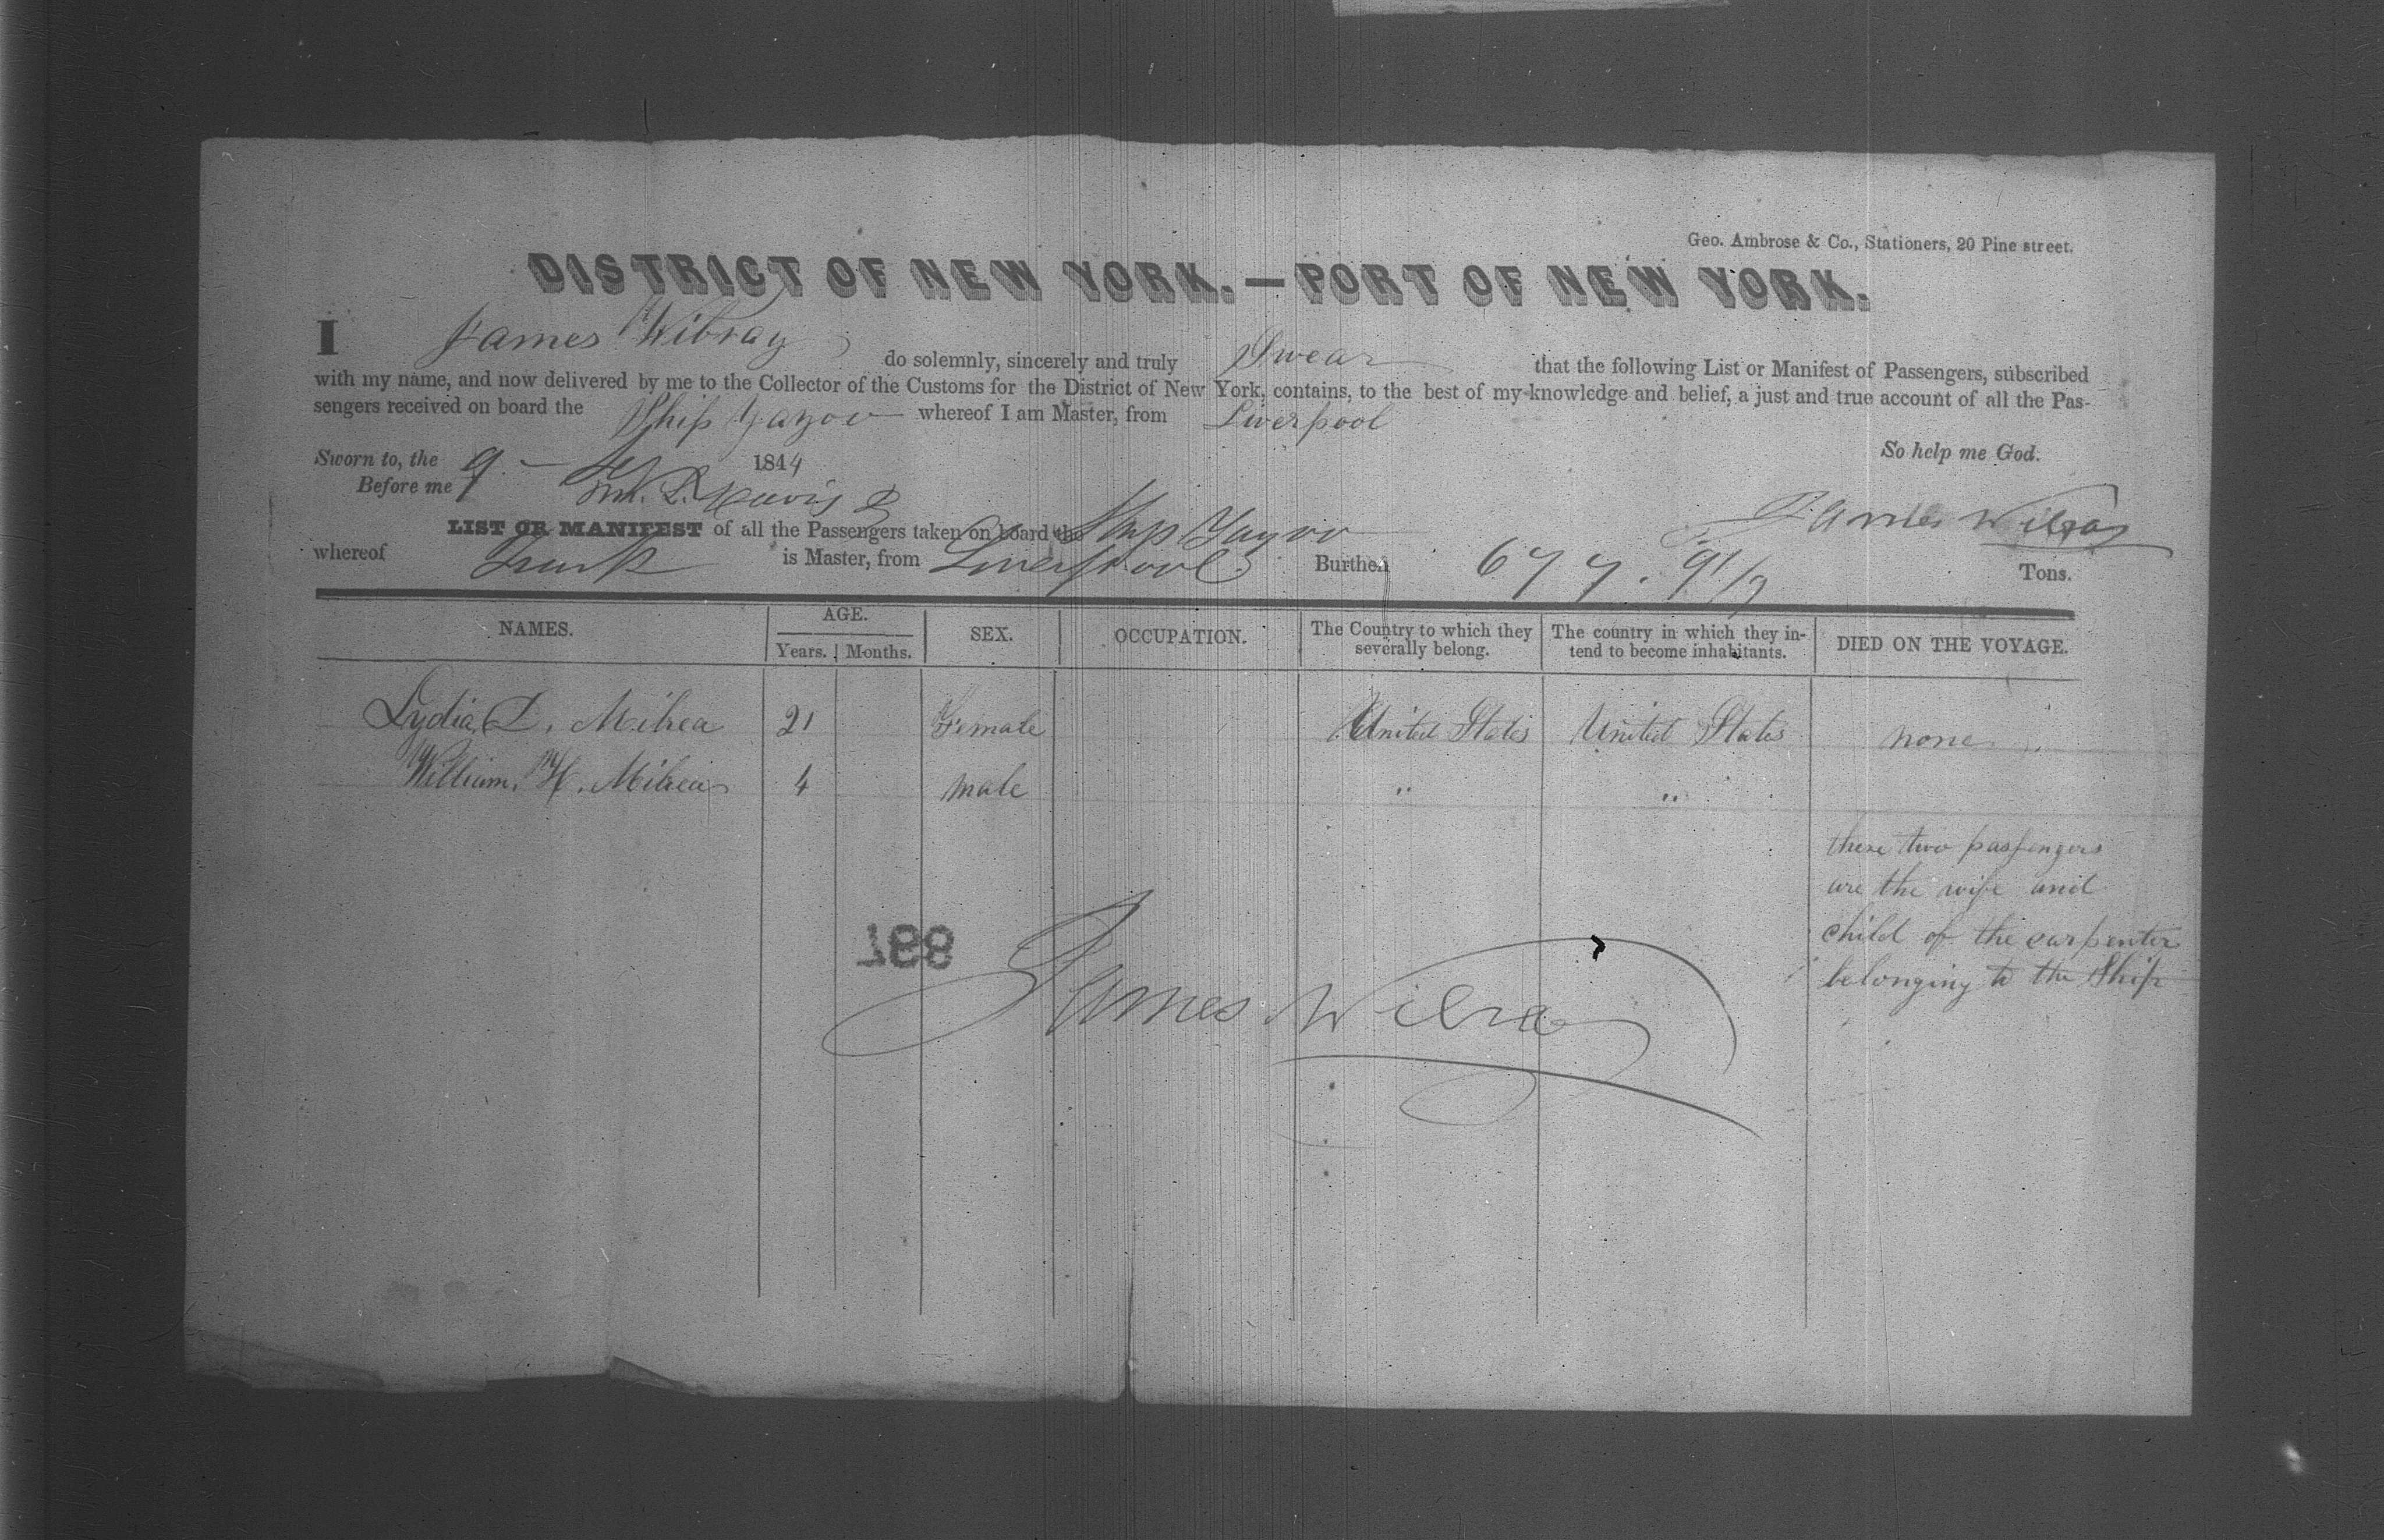 Geo. Ambrose & Co., Stationers, 20 Pine street.
DISTRICT OF NEW YORK.—PORT OF NEW YORK.
I James Wibray do solemnly, sincerely and truly Swear that the following List or Manifest of Passengers, subscribed
with my name, and now delivered by me to the Collector of the Customs for the District of New York, contains, to the best of my knowledge and belief, a just and true account of all the Pas-
sengers received on board the Ship Yazoo whereof I am Master, from Liverpool
So help me God.
Sworn to, the 9 1844
Before me
James Wibray
LIST OR MANIFEST of all the Passengers taken on board the Ship Yazoo
whereof is Master, from Liverpool Burthen 677. 91/ Tons.
NAMES. AGE. Years. Months. SEX. OCCUPATION. The Country to which they severally belong. The country in which they in-tend to become inhabitants. DIED ON THE VOYAGE.
Lydia, L. Mihea 21 Female United States United States none
William. H. Mihea 4 male " "
these two passengers
are the wife and
child of the carpenter
belonging to the Ship
897
James Wibray